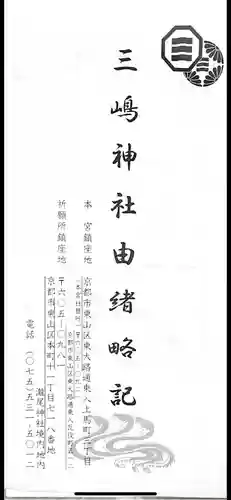 三嶋神社由緒略記
本宮鎮座地 京都市東山区東大路通東入上馬町三丁目
祈願所鎮座地 〒六〇五－〇九八一
京都市東山区本町十一丁目七一八番地
瀧尾神社境内地内
電話 （〇七五）五三一－五〇一二